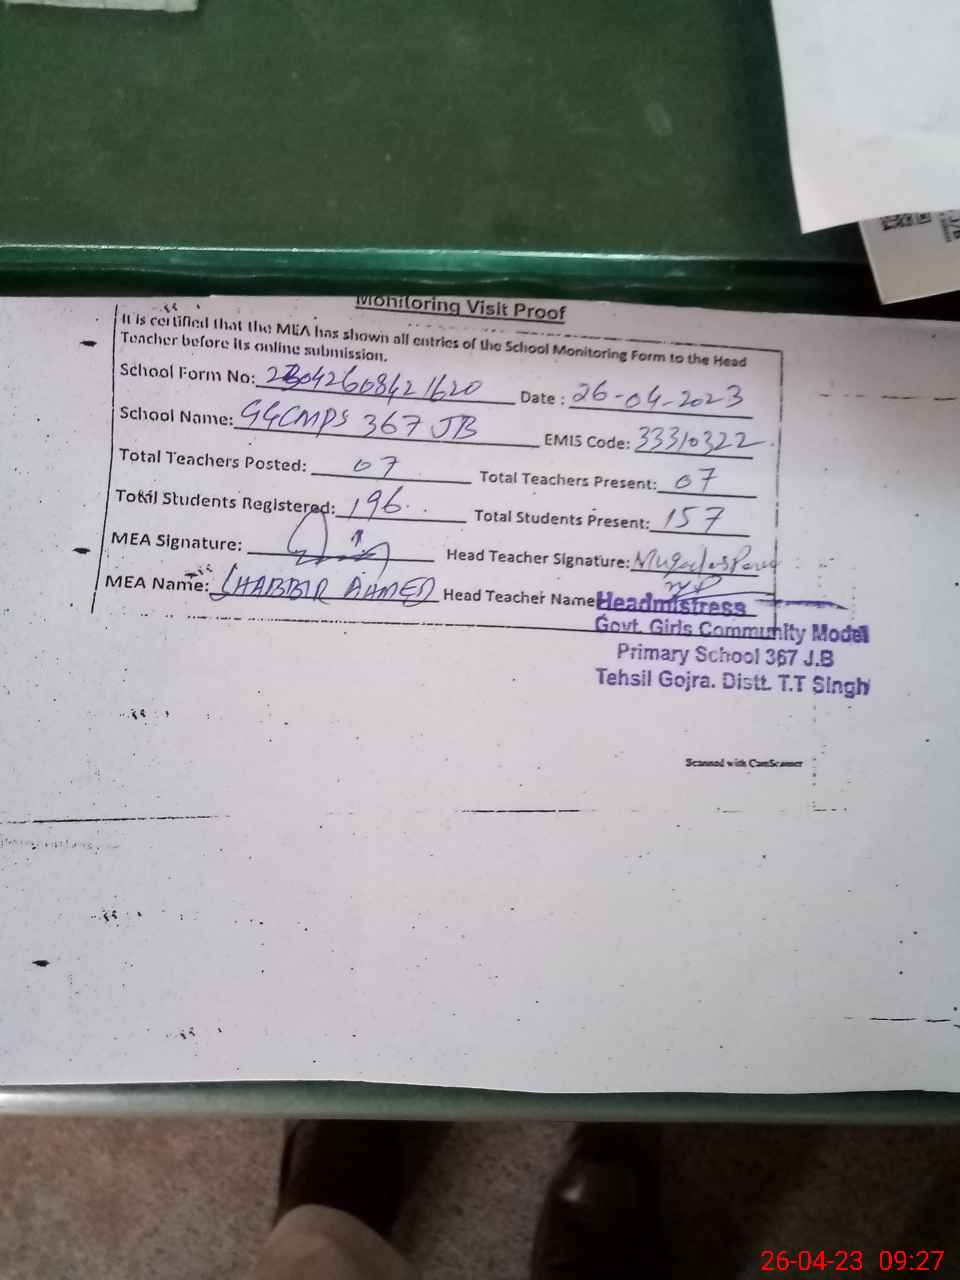 Monitoring Visit Proof
It is certified that the MEA has shown all entries of the School Monitoring Form to the Head
Teacher before its online submission.
School Form No: 23042608421620 Date : 26-04-2023
School Name: GGCMPS 367 JB EMIS Code: 33310322
Total Teachers Posted: 07 Total Teachers Present: 07
Total Students Registered: 196 Total Students Present: 157
MEA Signature: Head Teacher Signature:
MEA Name: SHABBIR AHMED Head Teacher Name
Headmistress
Govt. Girls Community Model
Primary School 367 J.B
Tehsil Gojra. Distt. T.T Singh
Scanned with CamScanner
26-04-23 09:27